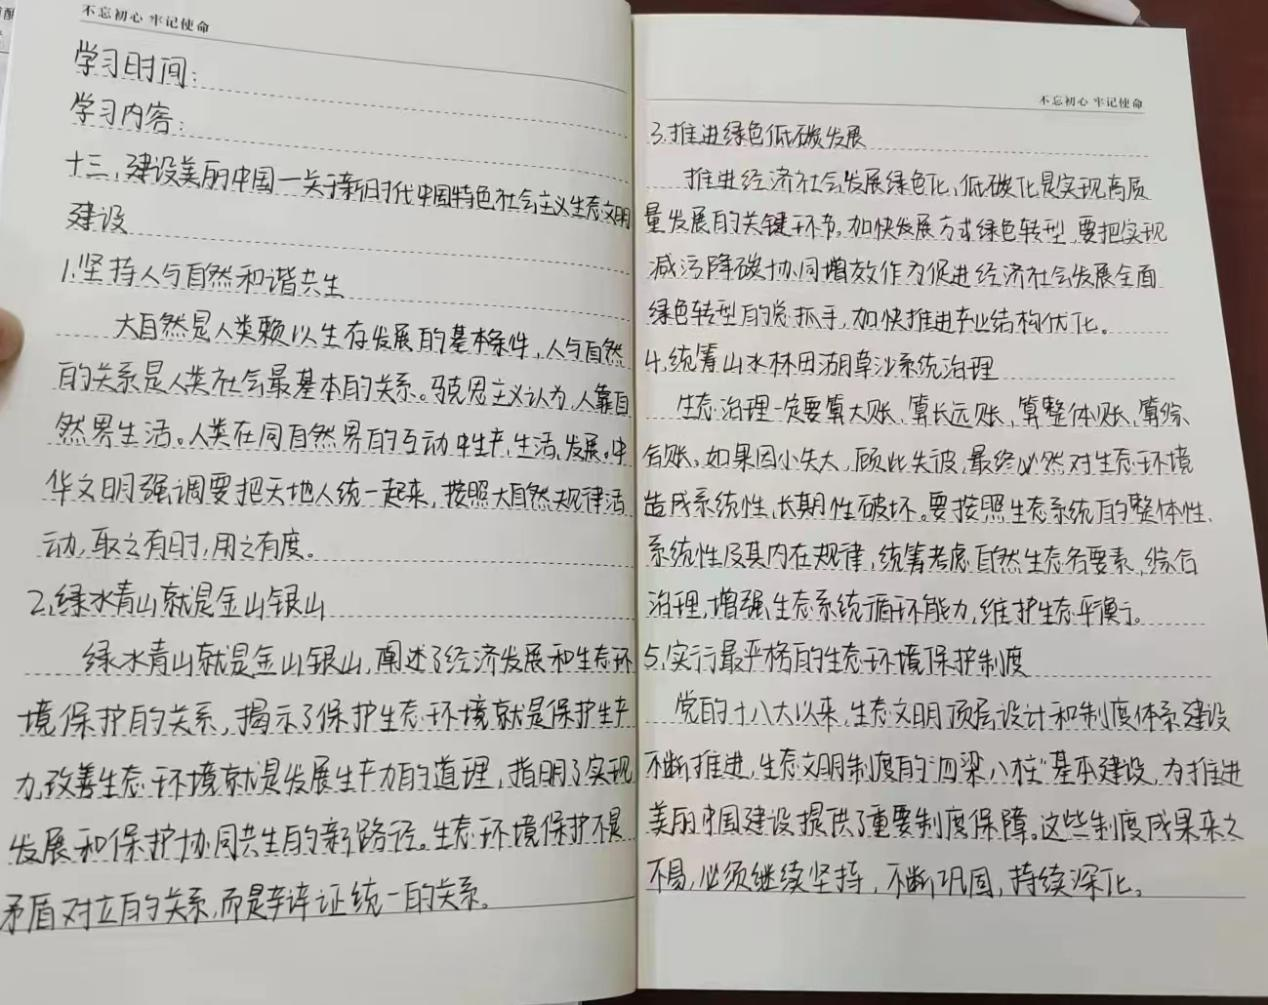 不忘初心 牢记使命
学习时间：
学习内容：
十三、建设美丽中国一关于新时代中国特色社会主义生态文明
建设
1.坚持人与自然和谐共生
大自然是人类赖以生存发展的基本条件,人与自然
的关系是人类社会最基本的关系。马克思主义认为,人靠自
然界生活。人类在同自然界的互动中生产,生活,发展。中
华文明强调要把天地人统一起来,按照大自然规律活
动,取之有时,用之有度。
2.绿水青山就是金山银山
绿水青山就是金山银山,阐述了经济发展和生态环
境保护的关系,揭示了保护生态环境就是保护生产
力,改善生态环境就是发展生产力的道理,指明了实现
发展和保护协同共生的新路径。生态环境保护不是
矛盾对立的关系,而是辛辩证统一的关系。
不忘初心 牢记使命
3.推进绿色低碳发展
推进经济社会发展绿色化,低碳化是实现高质
量发展的关键环节。加快发展方式绿色转型,要把实现
减污降碳协同增效作为促进经济社会发展全面
绿色转型的总抓手,加快推进产业结构优化。
4.统筹山水林田湖草沙系统治理
生态治理一定要算大账、算长远账、算整体账、算综
合账,如果因小失大,顾此失彼,最终必然对生态环境
造成系统性,长期性破坏。要按照生态系统的整体性、
系统性及其内在规律,统筹考虑自然生态各要素,综合
治理,增强生态系统循环能力,维护生态平衡。
5.实行最严格的生态环境保护制度
党的十八大以来,生态文明顶层设计和制度体系建设
不断推进,生态文明制度的"四梁八柱"基本建设,为推进
美丽中国建设提供了重要制度保障。这些制度成果来之
不易,必须继续坚持,不断巩固,持续深化。